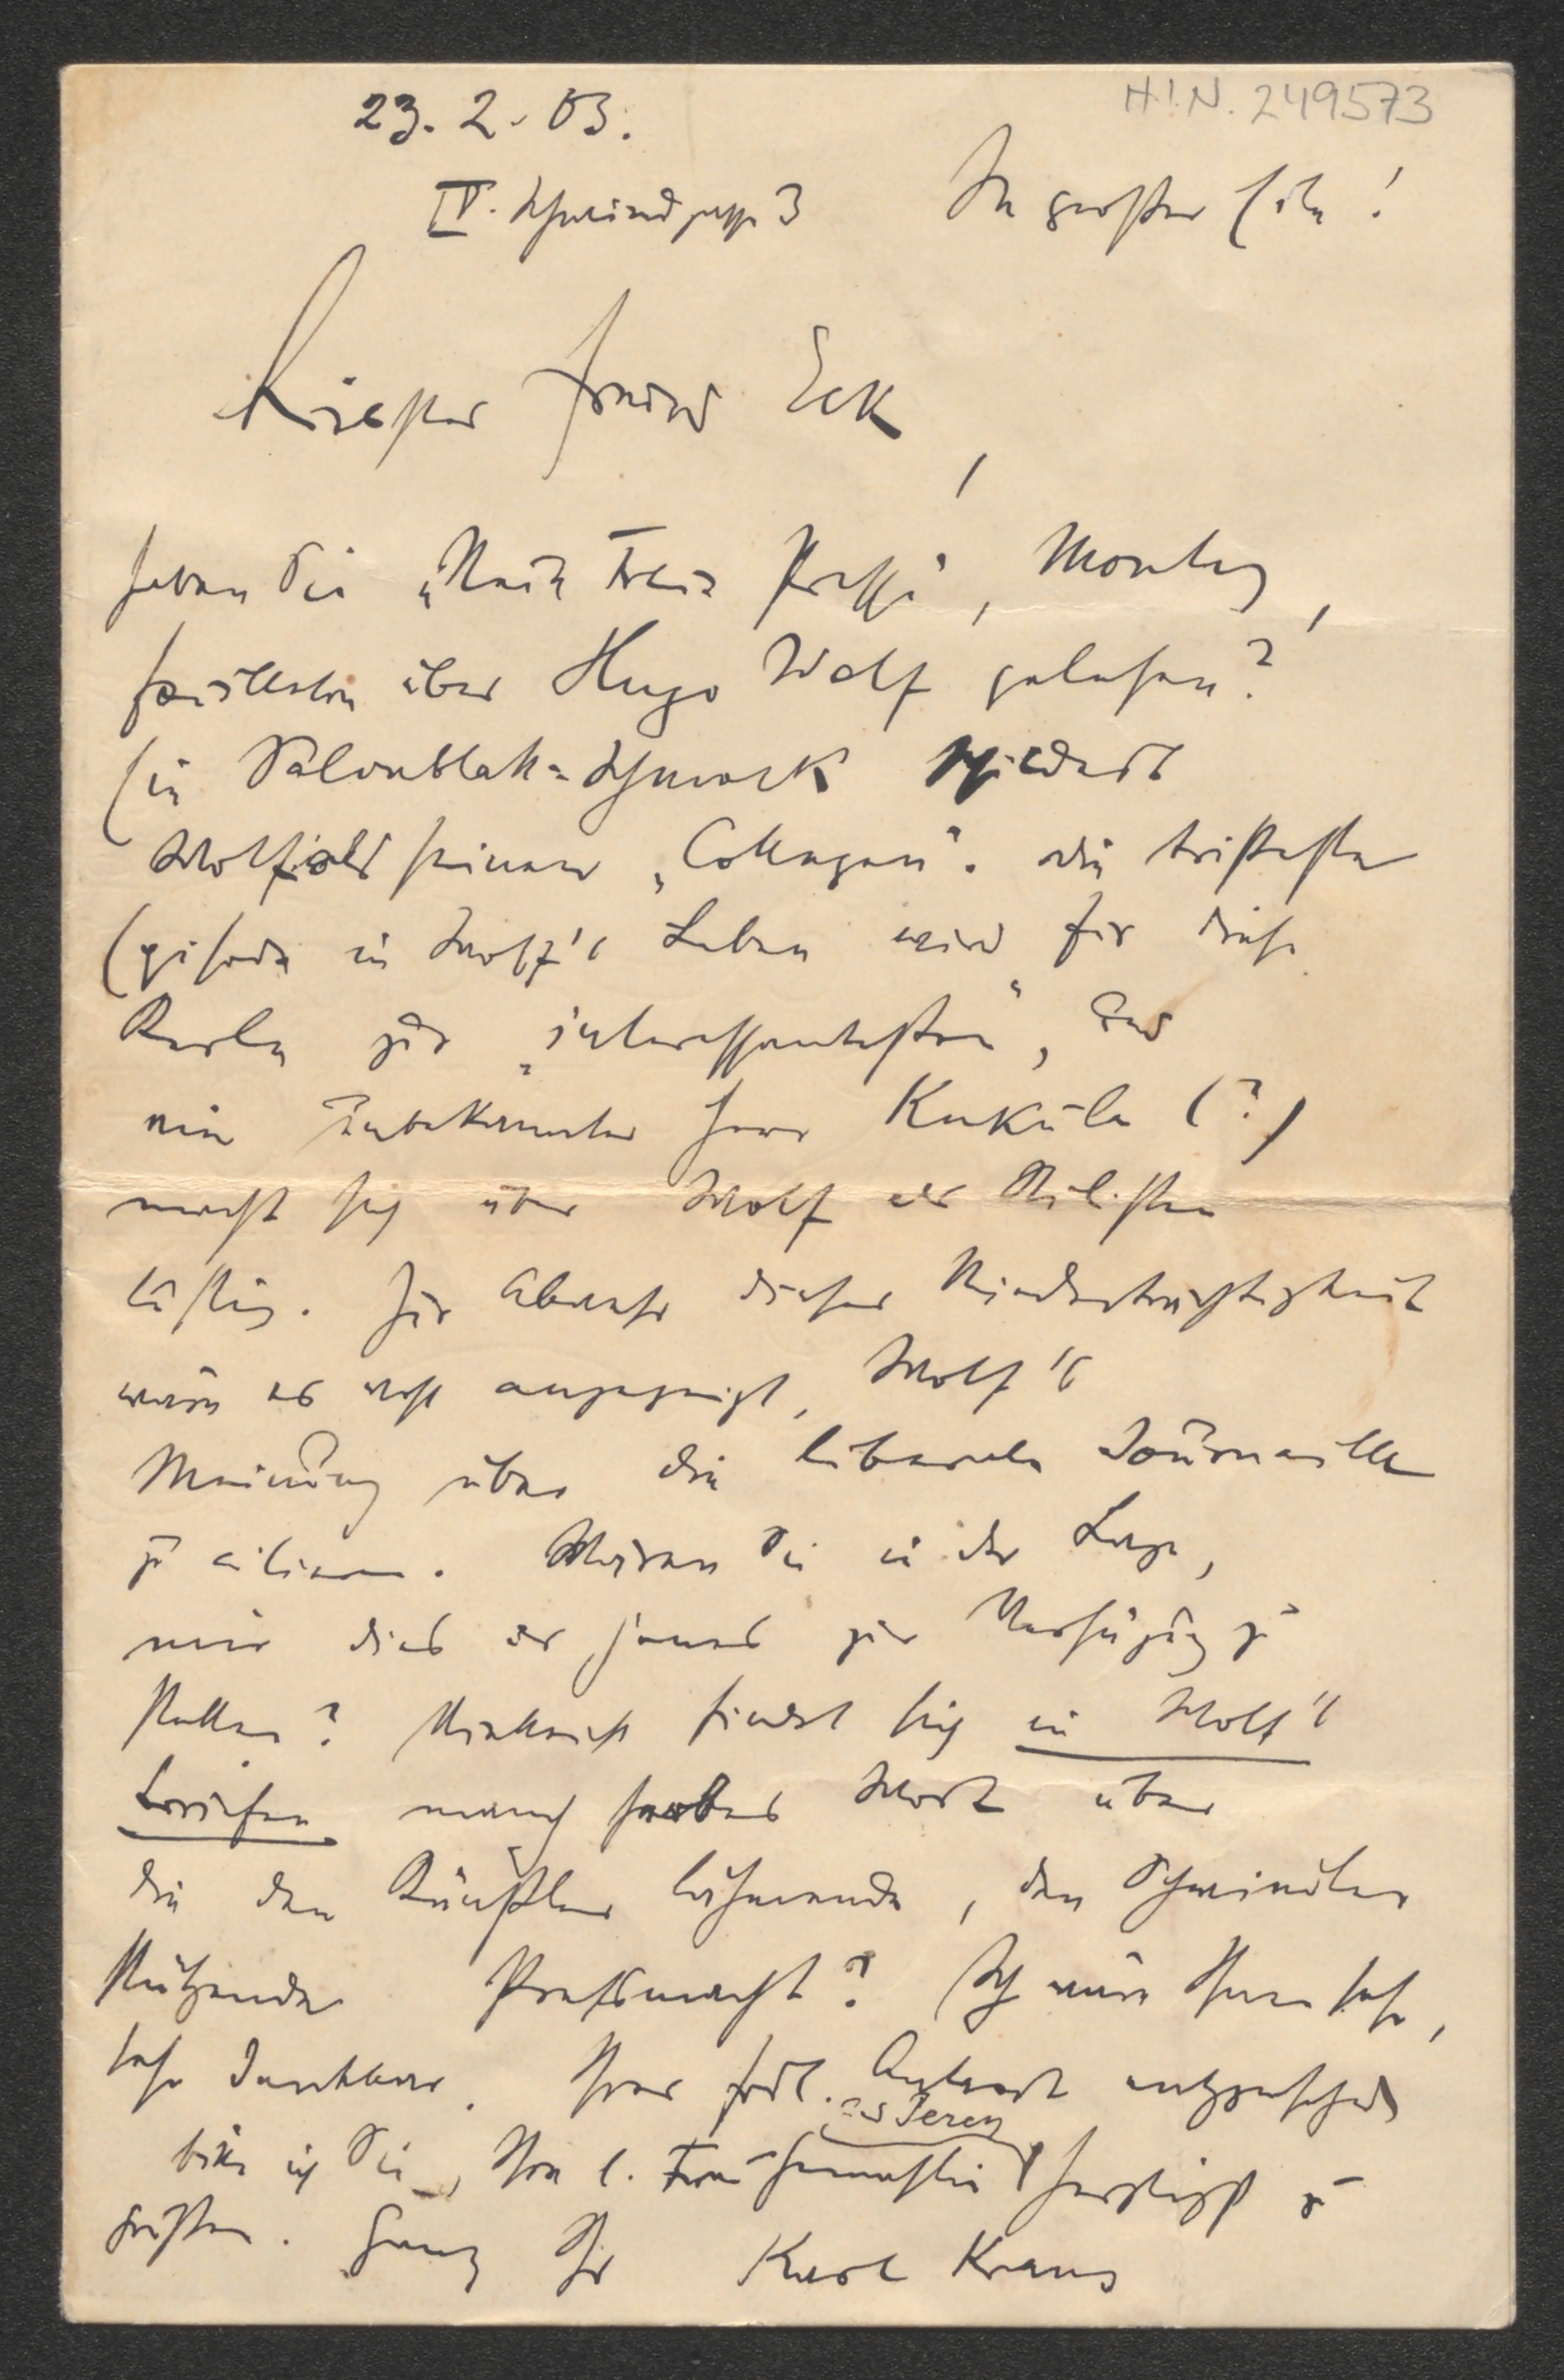 H.I.N. 249573
23. 2. 03.
IV. Schwindgasse 3 In großer Eile!
Liebster Freund Eck,
haben Sie „Neue Freie Presse“, Montag,
Feuilleton über Hugo Wolf gelesen?
Ein Salonblatt-Schmock schildert
Wolf als seinen „Collegen“. Die tristeste
Episode in Wolf's Leben wird für diese
Kerle zur „interessantesten“, und
ein unbekannter Herr Kukula (?)
macht sich über Wolf als Stilisten
lustig. Zur Abwehr dieser Niederträchtigkeit
wäre es wohl angezeigt, Wolf's
Meinung über die liberale Journaille
zu citieren. Wären Sie in der Lage,
mir dies oder jenes zur Verfügung zu
stellen? Vielleicht findet sich in Wolf's
Briefen manch herbes Wort über
die den Künstler lähmende, den Schwindler
stützende Pressmacht? Ich wäre Ihnen sehr,
sehr dankbar. Ihrer frdl. Antwort entgegensehend
bitte ich Sie, Ihre l. Frau Gemahlin
und Perey
herzlichst zu
grüßen. Ganz Ihr Karl Kraus